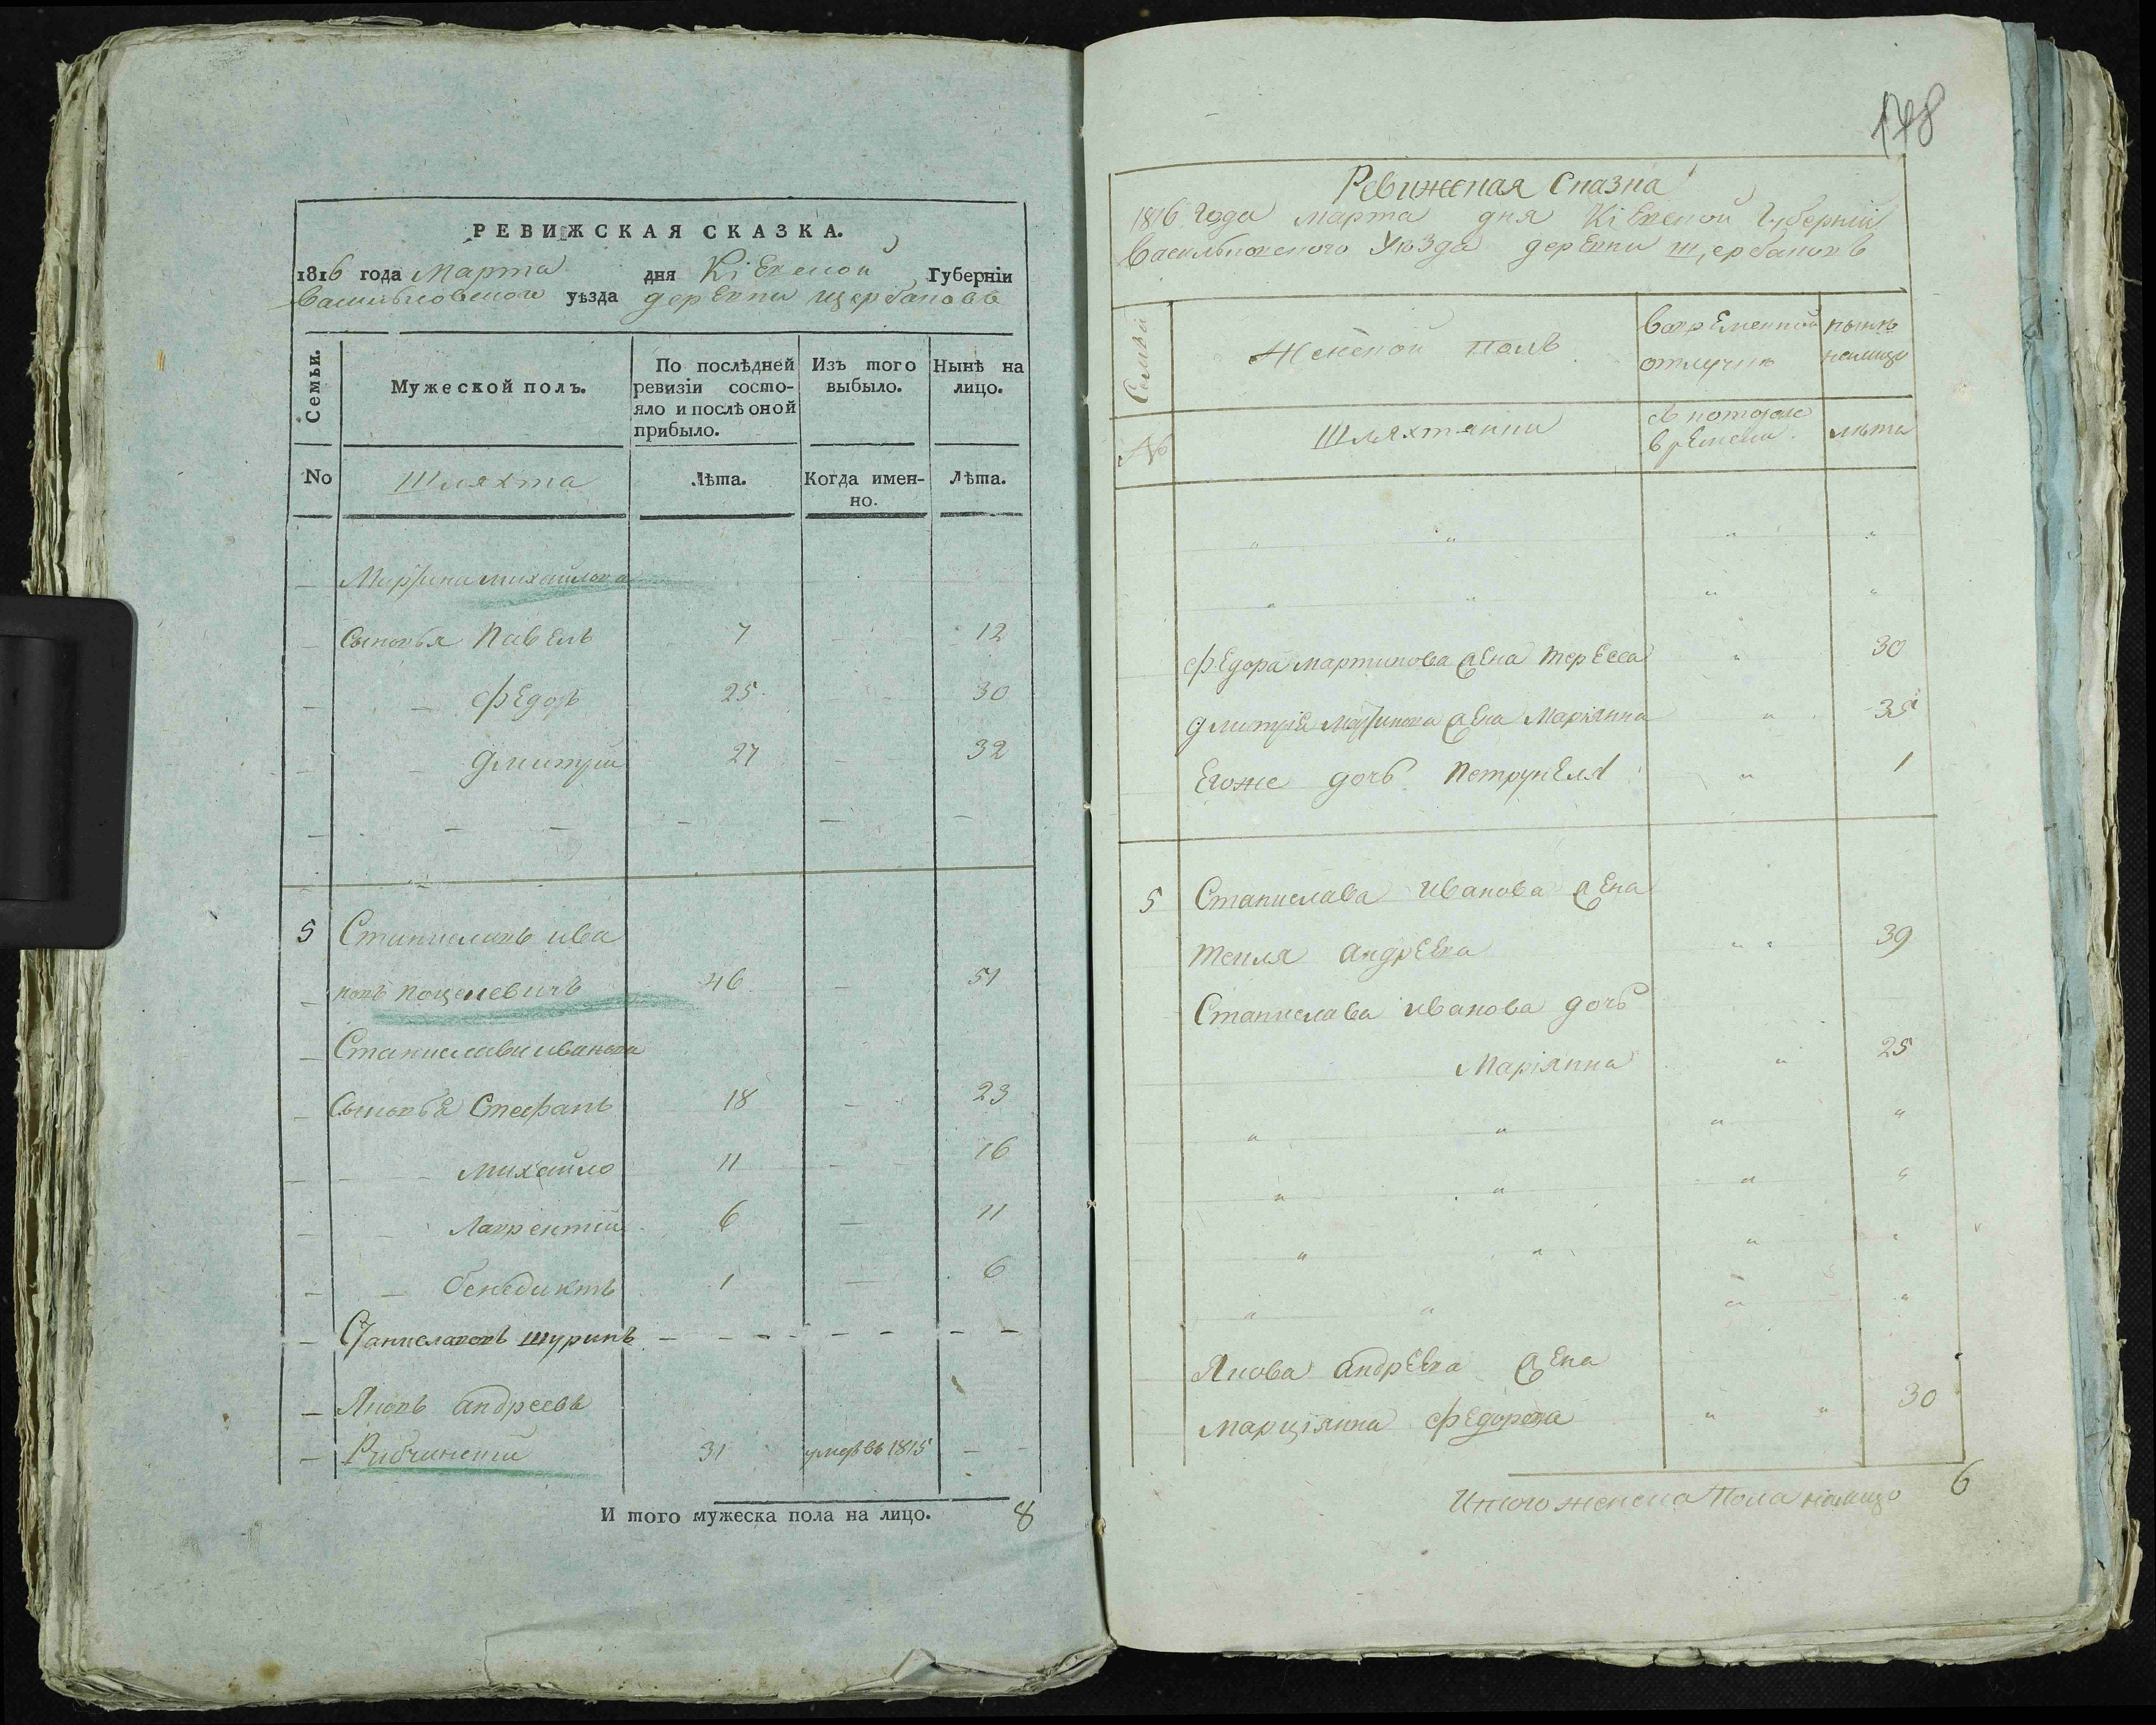 РЕВИЖСКАЯ СКАЗКА.
1816 года Марта дня Кіевской Губерніи
Васильковского уѣзда деревни щербаковъ
Семьи.
Мужеской полъ.
По послѣдней ревизіи состо-
яло и послѣ оной
прибыло.
Изъ того
выбыло.
Нынѣ на
лицо.
No
Шляхта
Лѣта.
Когда имен-
но.
Лѣта.
Мартина михайлова
Сыновья Павелъ 7 12
Федоръ 25 30
Дмитрій 27 32
5 Станиславъ ива
новъ 46 51
Станислава иванова
Сыновья Стефанъ 18 23
михайло 11 16
Лаврентій 6 11
бенедиктъ 1 6
Станиславовъ шуринъ
Яковъ андреевъ
Рибчинскій 31 умеръ въ 1815
И того мужеска пола на лицо. 8
178
Ревижская Сказка
1816 года марта дня Кіевской Губерніи
Васильковского Уѣзда деревни щербаковъ
Семьи
Женской полъ
Вовременной
отлучкѣ
нынѣ
налицо
№
Шляхтянки
Съ котораго
времени.
лѣта
Федора мартинова жена Тересса 30
Дмитрія Мартинова жена Маріянна
Егоже дочь Петрунеля 1
5 Станислава Иванова жена
Текля андреева 39
Станислава иванова дочь
Маріянна 25
Якова андреева жена
марціянна Федорова 30
Итого женска Пола налицо 6